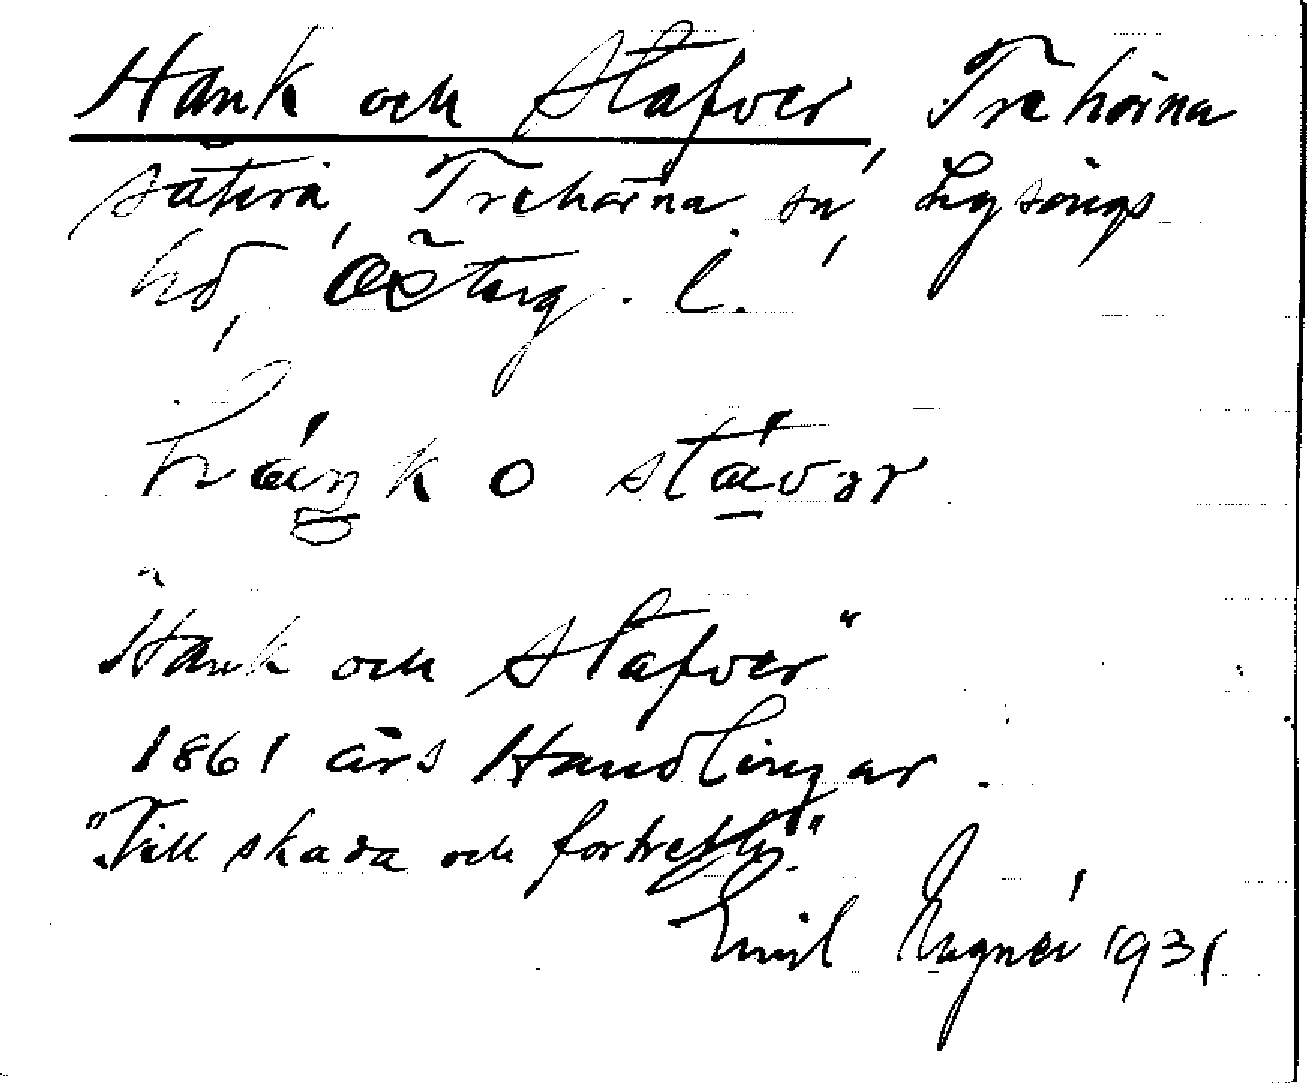 Hank och Stafver, Trehörna
sätera, Trehörna sn, Lysings
hd, Österg. l.
háŋk o stávər
"Hank och Stafver"
1861 års Handlingar.
"Till skada och förtret".
Emil 1931